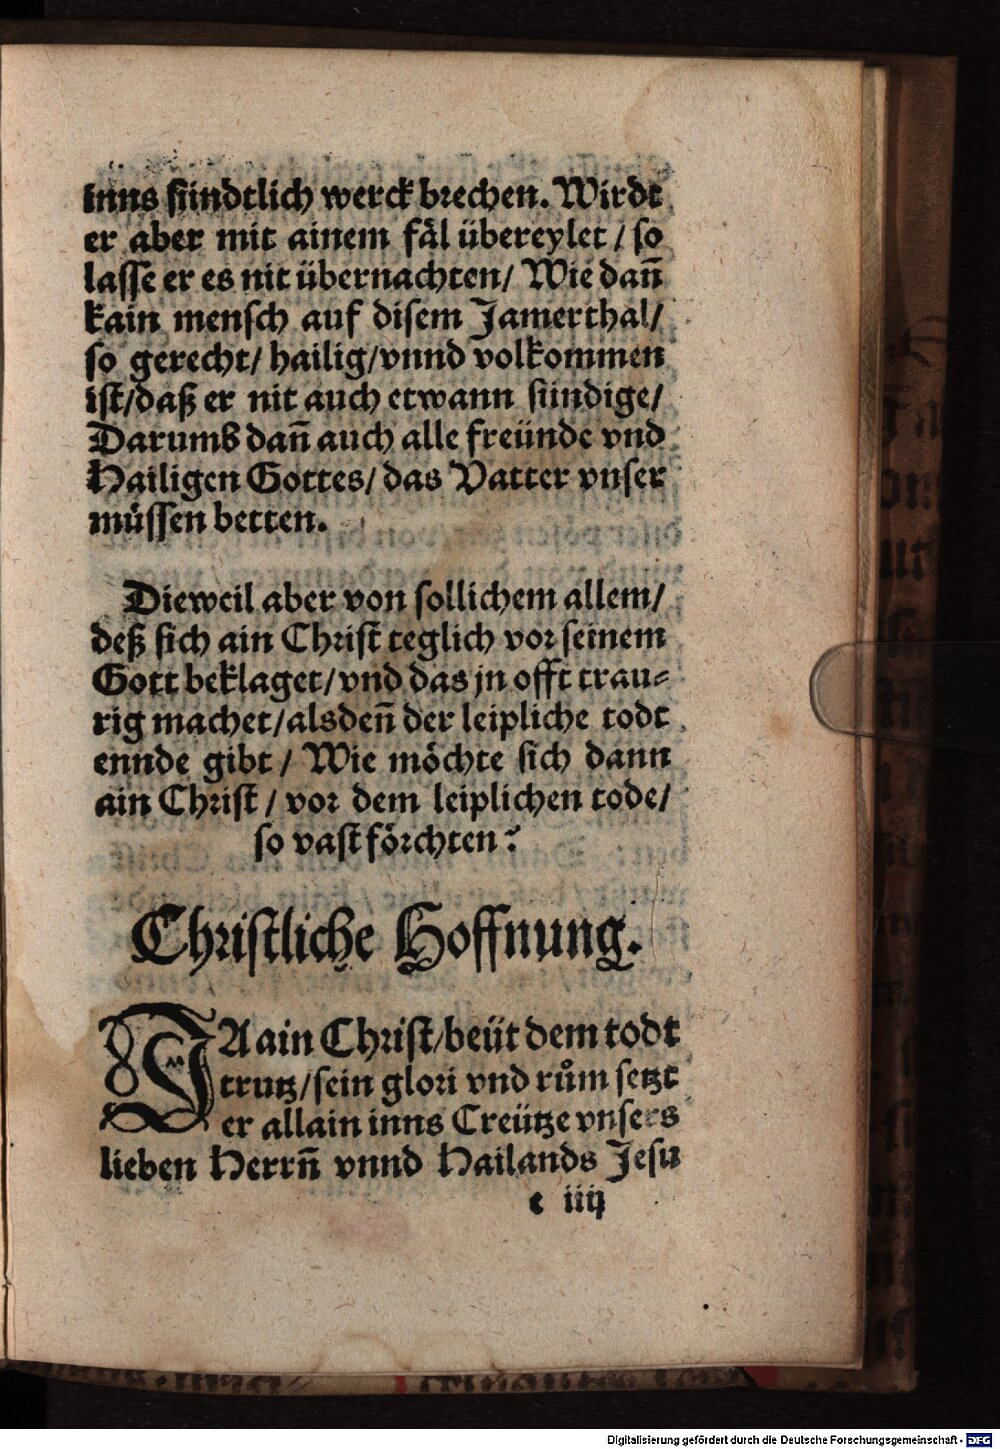 inns sündtlich werck brechen. Wirdt
er aber mit ainem fäl übereylet / so
lasse er es nit übernachten / Wie dañ
kain mensch auf disem Jamerthal /
so gerecht / hailig / vnnd volkommen
ist / daß er nit auch etwann sündige /
Darumb dañ auch alle freünde vnd
Hailigen Gottes / das Vatter vnser
müssen betten.
Dieweil aber von sollichem allem /
deß sich ain Christ teglich vor seinem
Gott beklaget / vnd das jn offt trau-
rig machet / alsdeñ der leipliche todt
ennde gibt / Wie möchte sich dann
ain Christ / vor dem leiplichen tode /
so vast förchten?
Christliche Hoffnung.
JA ain Christ / beüt dem todt
trutz / sein glori vnd rům setzt
er allain inns Creütze vnsers
lieben Herrñ vnnd Hailands Jesu
c iiij
Digitalisierung gefördert durch die Deutsche Forschungsgemeinschaft - DFG